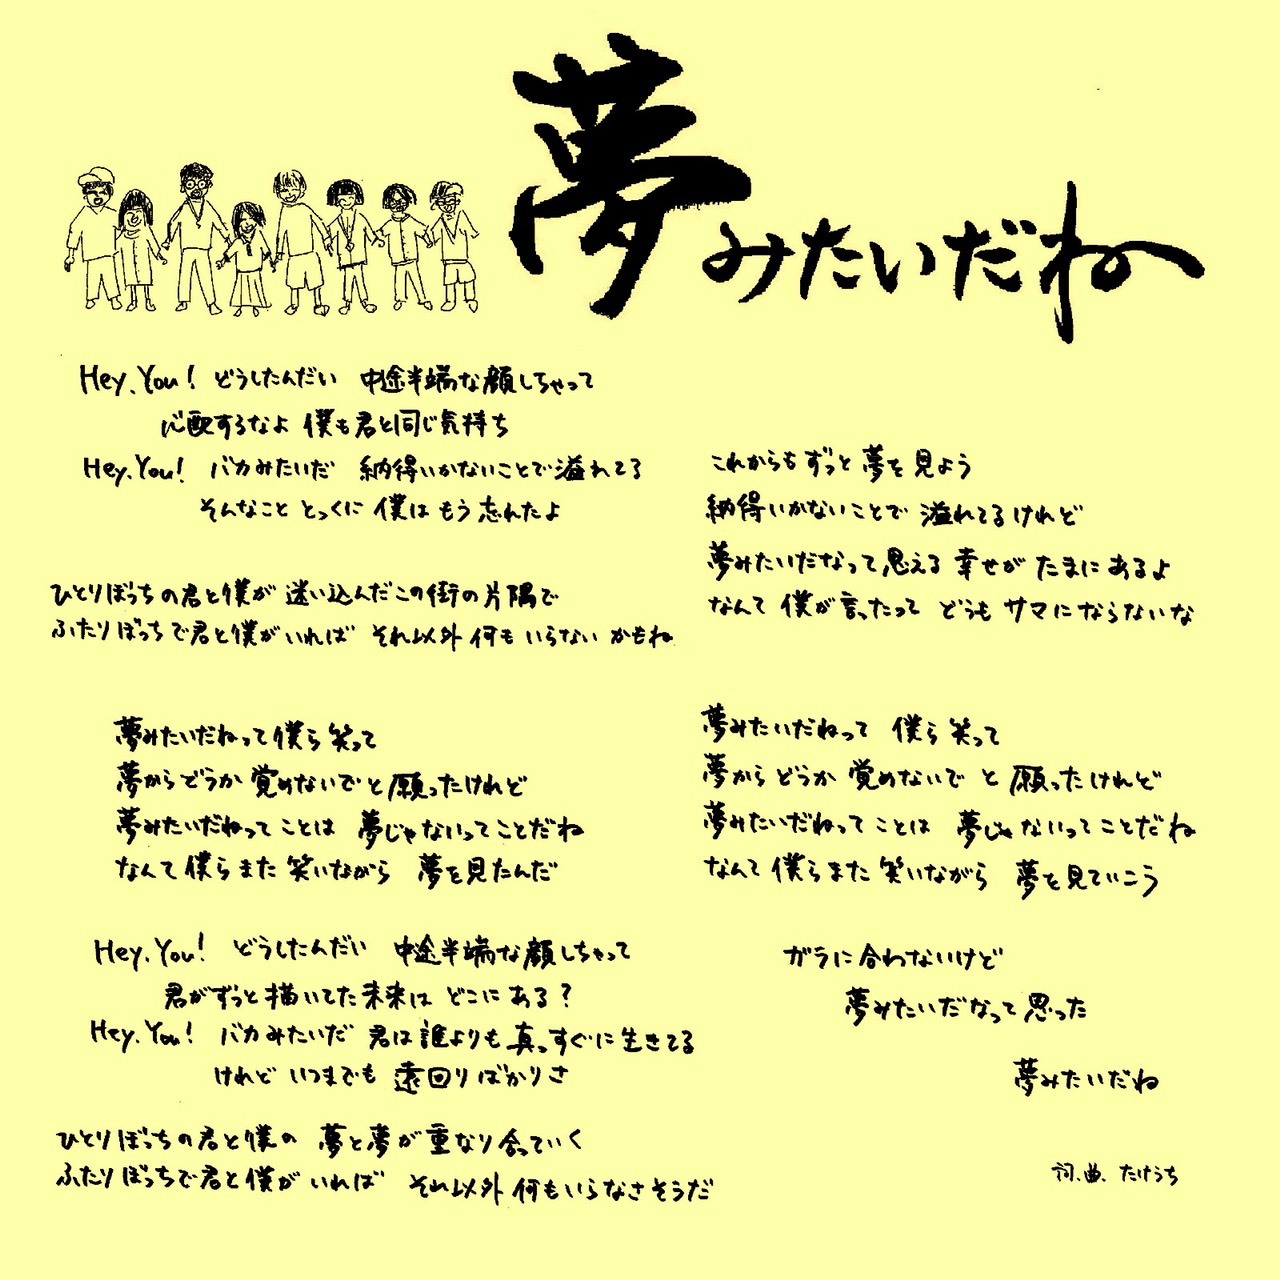 夢みたいだね
Hey, You! どうしたんだい 中途半端な顔しちゃって
心配するなよ 僕も君と同じ気持ち
Hey, You! バカみたいだ 納得いかないことで溢れてる
そんなこと とっくに 僕は もう 忘れたよ
ひとりぼっちの君と僕が 迷い込んだこの街の片隅で
ふたりぼっちで君と僕がいれば それ以外何もいらないかもね
夢みたいだねって僕ら笑って
夢からどうか覚めないでと願ったけれど
夢みたいだねってことは 夢じゃないってことだね
なんて僕らまた笑いながら 夢を見たんだ
Hey, You! どうしたんだい 中途半端な顔しちゃって
君がずっと描いてた未来は どこにある?
Hey, You! バカみたいだ 君は誰よりも真っすぐに生きてる
けれど いつまでも 遠回りばかりさ
ひとりぼっちの君と僕の 夢と夢が重なり合っていく
ふたりぼっちで君と僕がいれば それ以外何もいらなさそうだ
これからもずっと夢を見よう
納得いかないことで 溢れてるけれど
夢みたいだなって思える 幸せが たまにあるよ
なんて 僕が言ったって どうも サマにならないな
夢みたいだねって 僕ら笑って
夢からどうか 覚めないで と願ったけれど
夢みたいだねってことは 夢じゃないってことだね
なんて僕らまた笑いながら 夢を見ていこう
ガラに合わないけど
夢みたいだなって思った
夢みたいだね
詞.曲. たけうち